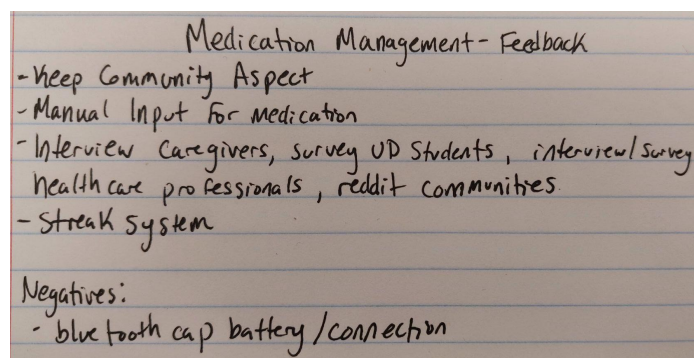 Medication Management - Feedback
- Keep Community Aspect
- Manual Input For Medication
- Interview Caregivers, survey UD Students, interview/survey
healthcare professionals, reddit communities
- Streak System
Negatives:
- bluetooth cap battery/connection